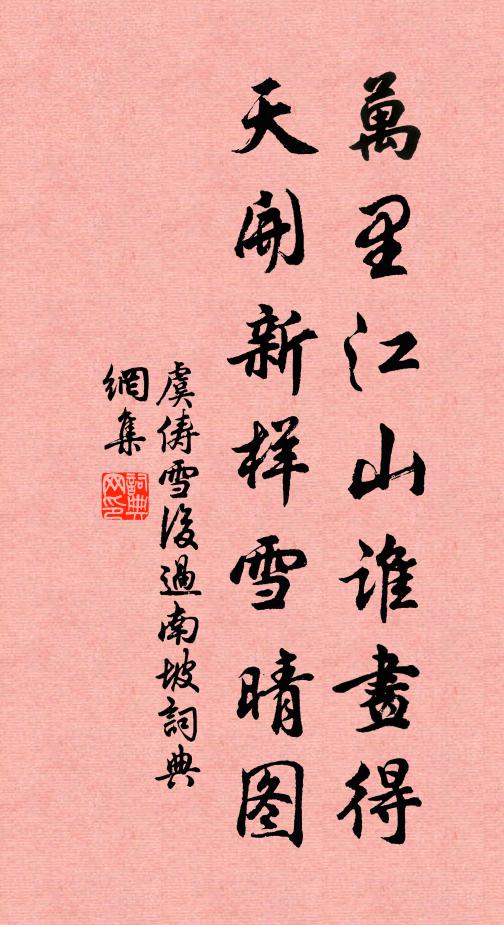 萬里江山谁畫得
天開新样雪晴图
虞俦雪後過南坡詞典
網集
詞典网印